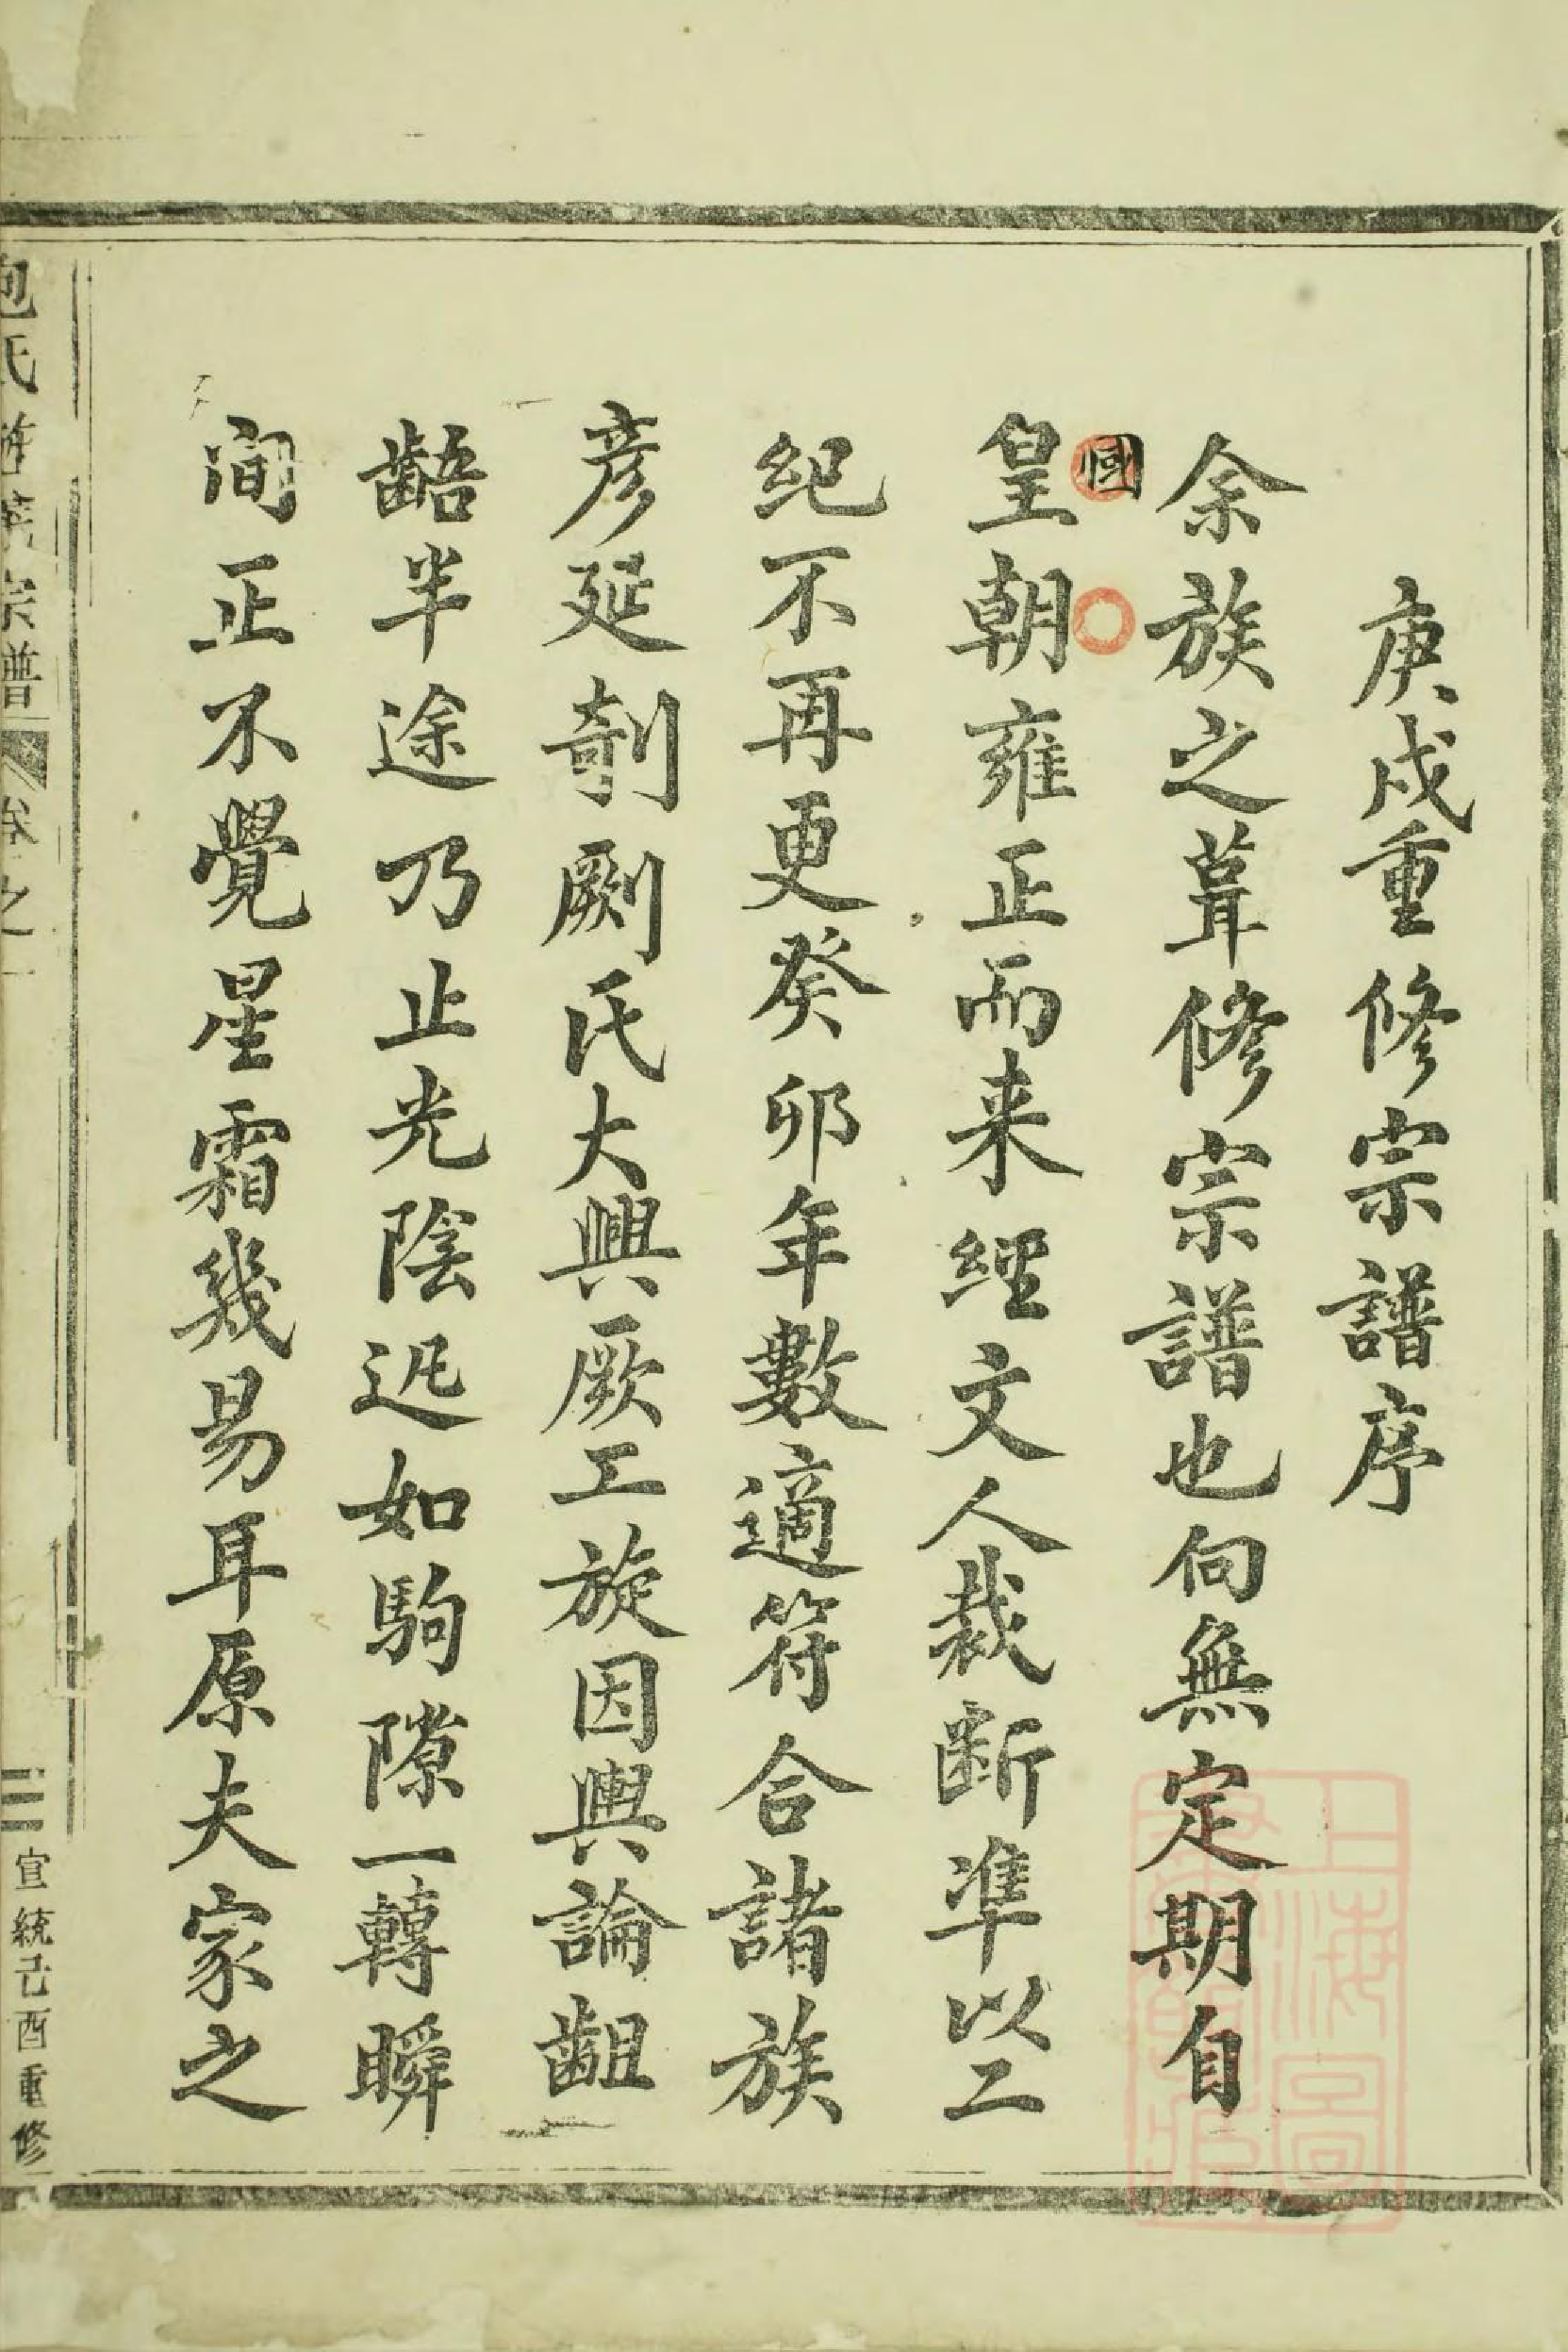 庚戌重修宗譜序
余族之葺修宗譜也向無定期自
國
皇朝雍正而来經文人裁断準以二
紀不再更癸卯年數適符合諸族
彦延剞劂氏大興厥工旋因輿論齟
齬半途乃止光陰迅如駒隙一轉瞬
間正不覺星霜幾易耳原夫家之
宗譜
卷之一
三
宣統己酉重修
上海圖